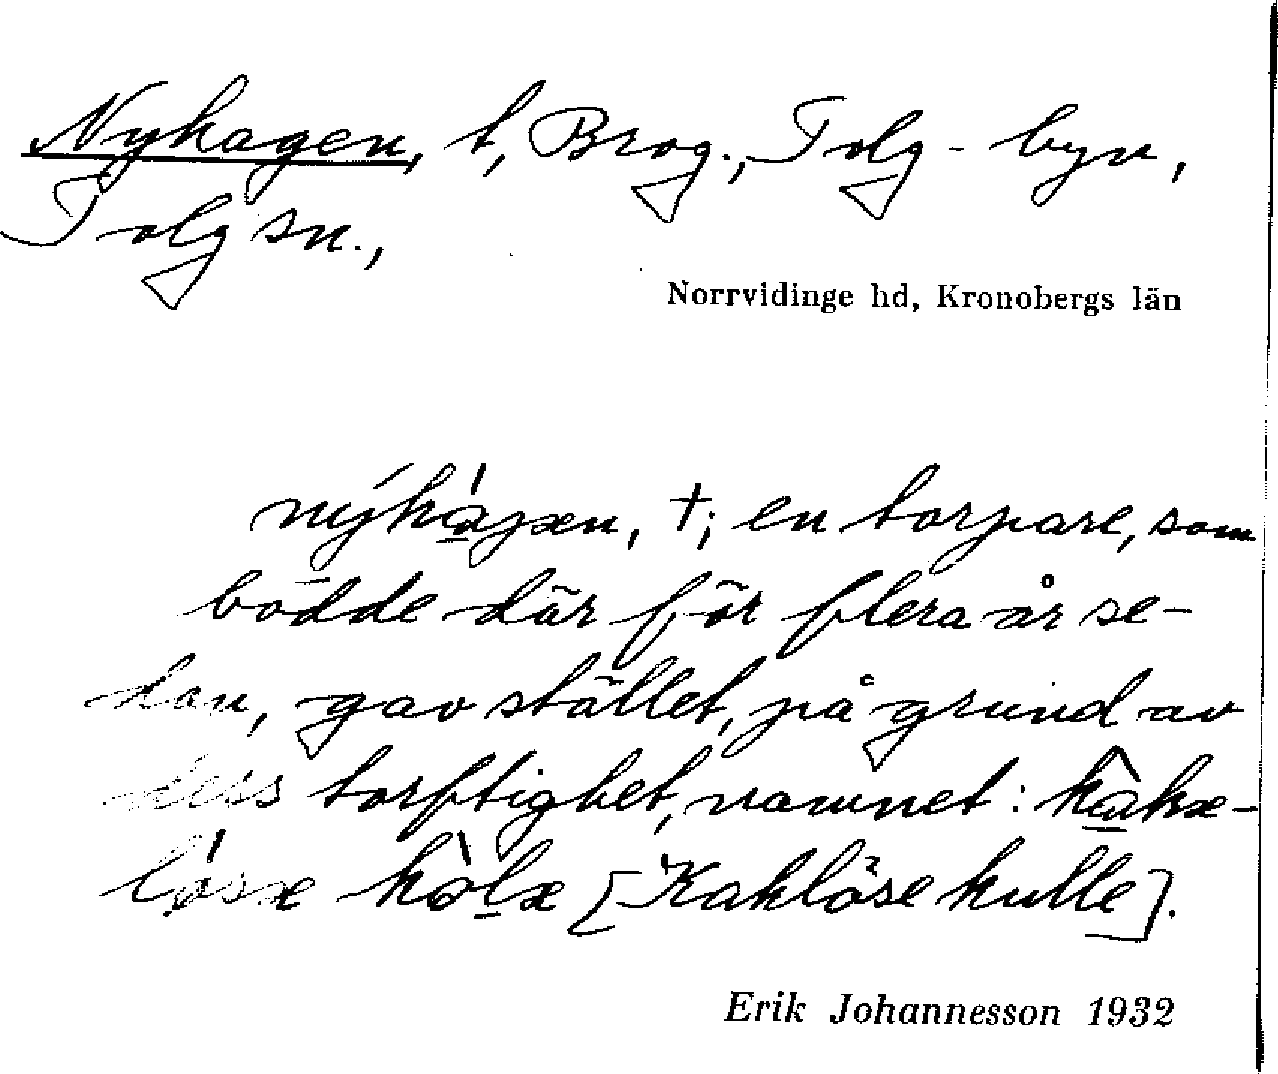 Nyhagen, t, Brog., Tolg-byn,
Tolg sn.,
Norrvidinge hd, Kronobergs län
†; en torpare, som
bodde där för flera år se-
dan, gav stället, på grund av
dess torftighet, namnet:
[Kaklöse kulle].
Erik Johannesson 1932